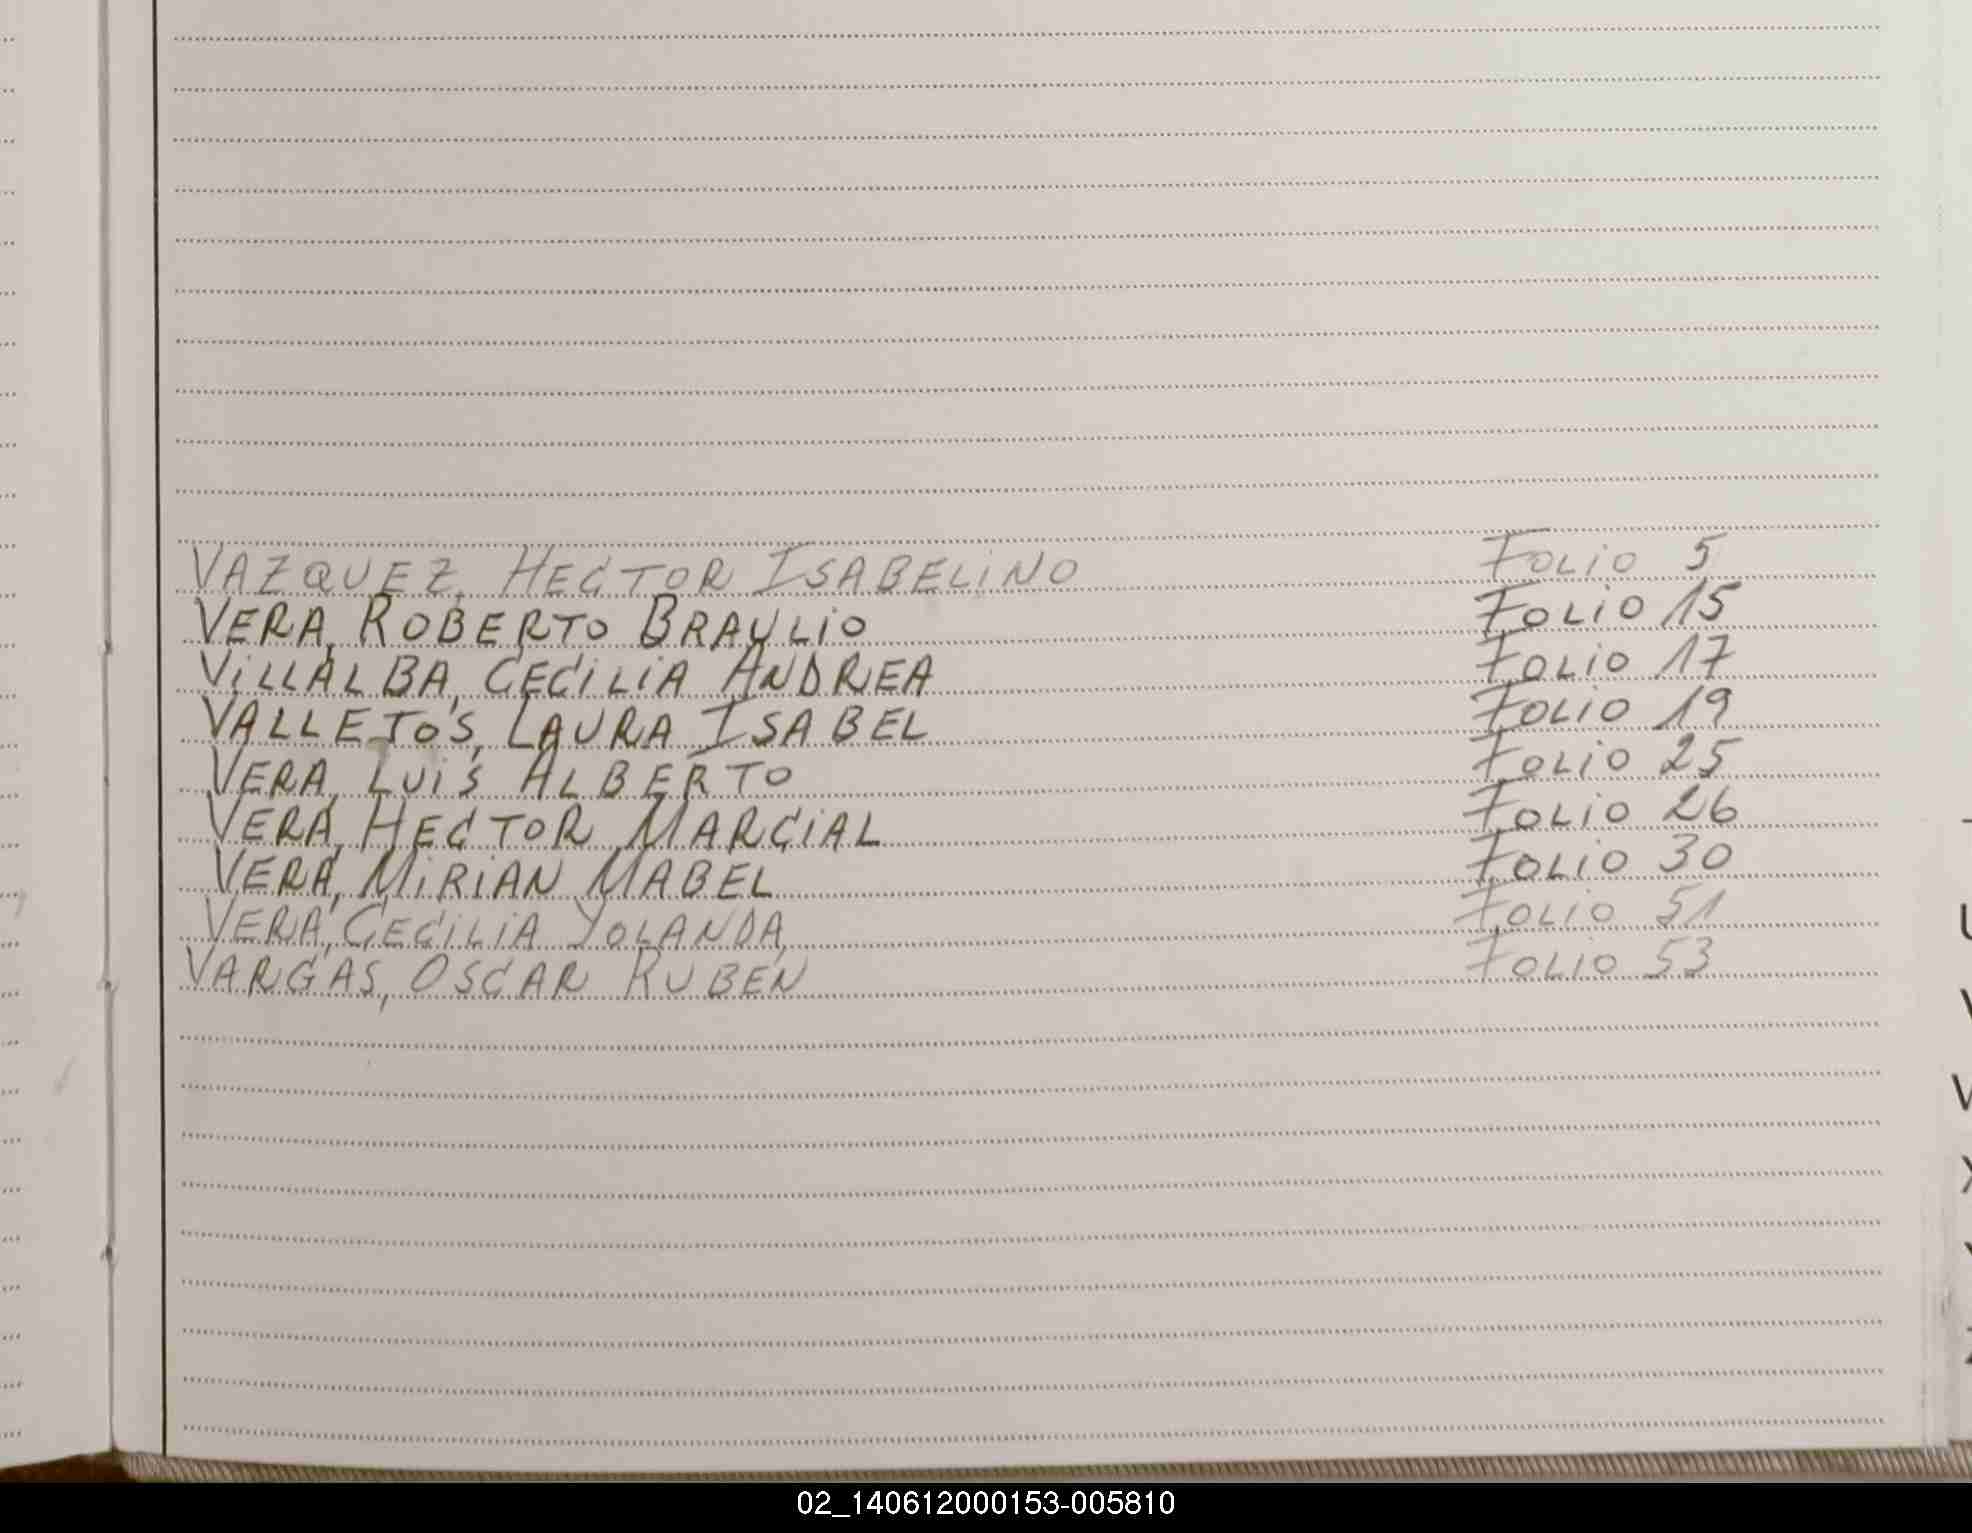 VAZQUEZ, HECTOR ISABELINO Folio 5
VERA, ROBERTO BRAULIO Folio 15
VILLALBA, CECILIA ANDREA Folio 17
VALLEJOS, LAURA ISABEL Folio 19
VERA, LUIS ALBERTO Folio 25
VERA, HECTOR MARCIAL Folio 26
VERA, MIRIAN MABEL Folio 30
VERA, CECILIA YOLANDA Folio 51
VARGAS, OSCAR RUBEN Folio 53
02_140612000153-005810